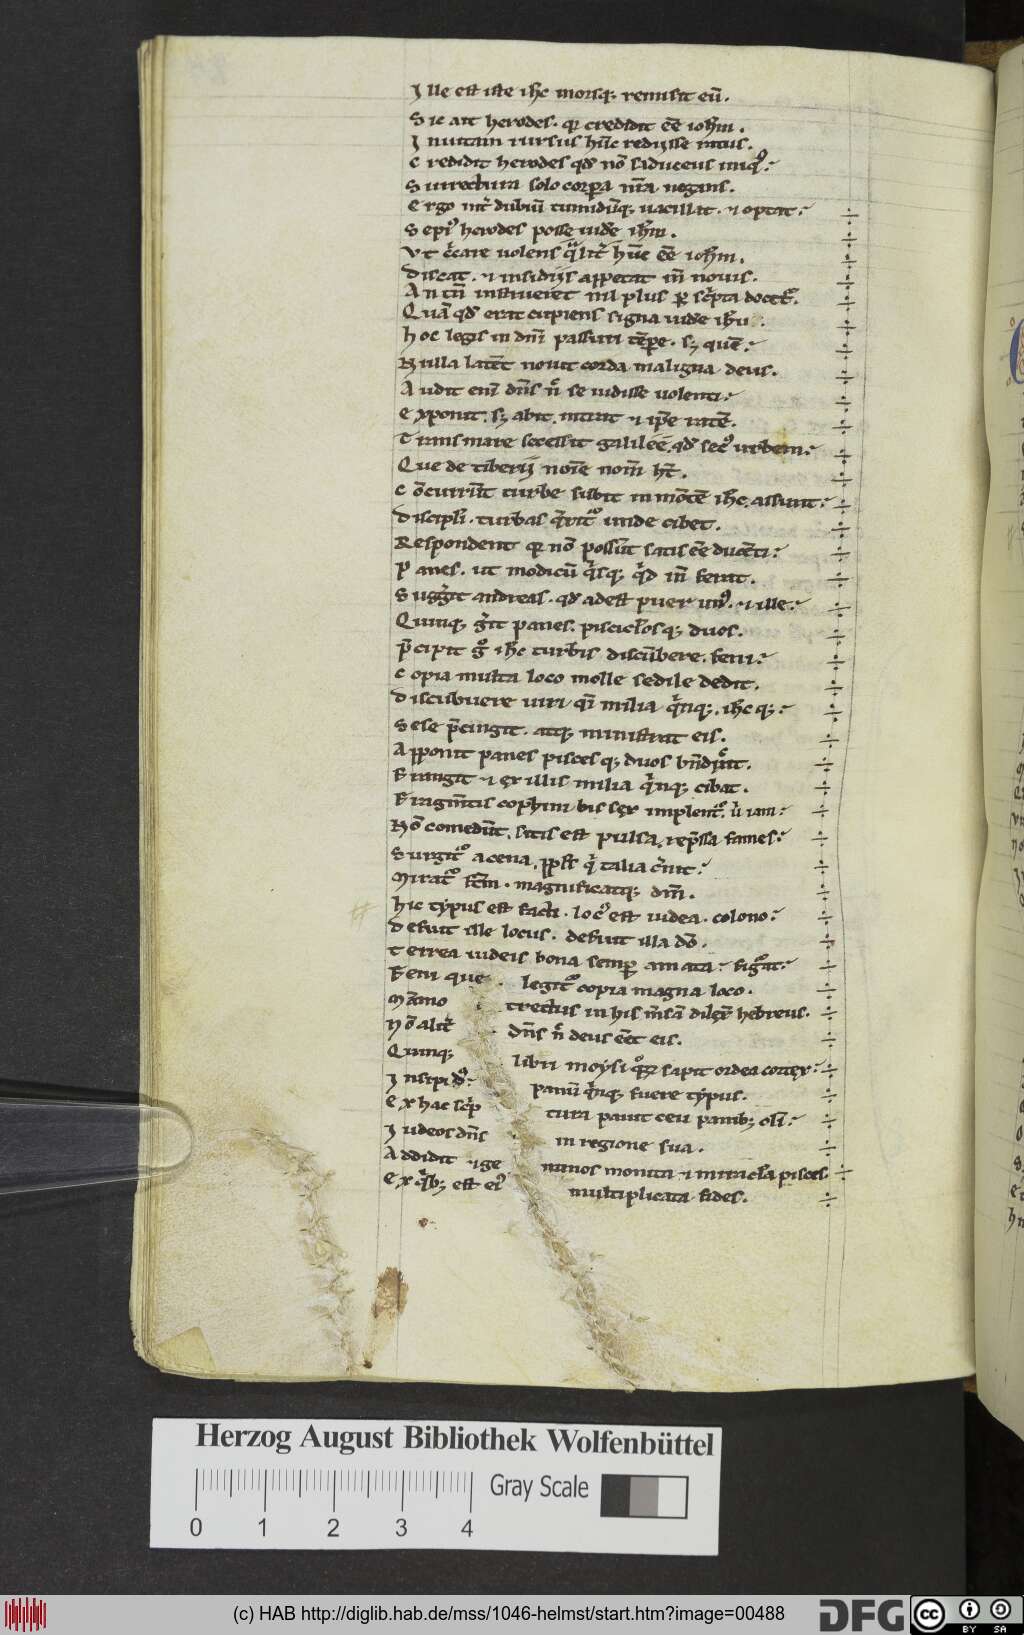 Ille est iste ihc morsq; remisit eū.
Sic ait herodes. qr credidit eē iohm.
In uitam rursus hūc redysse intus.
Credidit herodes qd nō saduceus iniq9:
Surrectura solo corpora nr̄a negans.
Ergo int̄ dubiū tumidūq; uacillat. & optat:
Sepi9 herodes posse uidē ihm.
Vt c̄care uolens qualit̄ hūc eē iohm.
Discat. & insidiis appetat in nouis.
An tn̄ instrueret nil plus per scpta doctor.
Quā qd erat cupiens signa uidē ihu.
hoc legis in dn̄i passuri tēpore. sz quē:
Nulla latēt nouit corda maligna deus.
Audit eni dn̄s nr̄ se uidisse uolenti:
Exponit. sz abit. intrat & ipe ratē.
Trans mare secessit galilee, qd sec9 urbem:
Que de tiberii noīe nom̄ ht.
Cōcurrunt turbe subit in mōtē ihc, assunt:
Discipli. turbas querit unde cibet.
Respondent qr nō possunt satis eē ducēti:
Panes. ut modicū qisq; quid in ferat.
Suggerit andreas. qd adest puer un9. & ille:
Quinq; gerit panes. pisciclosq; duos.
Precipit g ihc turbis discūbere, feni:
Copia multa loco molle sedile dedit.
Discubuere uiri qi milia qinq; . ihc q;:
Sese precingit. atq; ministrat eis.
Apponit panes pisces q; duos bn̄dixit.
Frangit & ex illis milia qinq; cibat.
Fragmtis cophini bis sex implent, ū iam:
Nō comedūt, sitis est pulsa, repressa fames:
Surgit a cena, qi talia cernit:
Mirat factm. magnificatq; dm̄.
hic typus est facti. loc9 est iudea. colono:
Defuit ille locus. defuit illa do.
Terrea iudeis bona semper amata: figurat:
Feni que legit copia magna loco.
Mamo trectus in his mensā dilexit hebreus.
Nō alit̄ dn̄s nr̄ deus eēt eis.
Quinq; libri moysi quorum sapit ordea cortex:
Insipid9: panū qinq; fuere typus.
Ex hac scp tura pauit ceu panib; oli:
Iudeos dn̄s in regione sua.
Addidit & ge minos monita & miracla pisces.
Ex qib; est ei9 multiplicata fides.
Herzog August Bibliothek Wolfenbüttel
Gray Scale
0 1 2 3 4
(c) HAB http://diglib.hab.de/mss/1046-helmst/start.htm?image=00488
DFG
cc BY SA